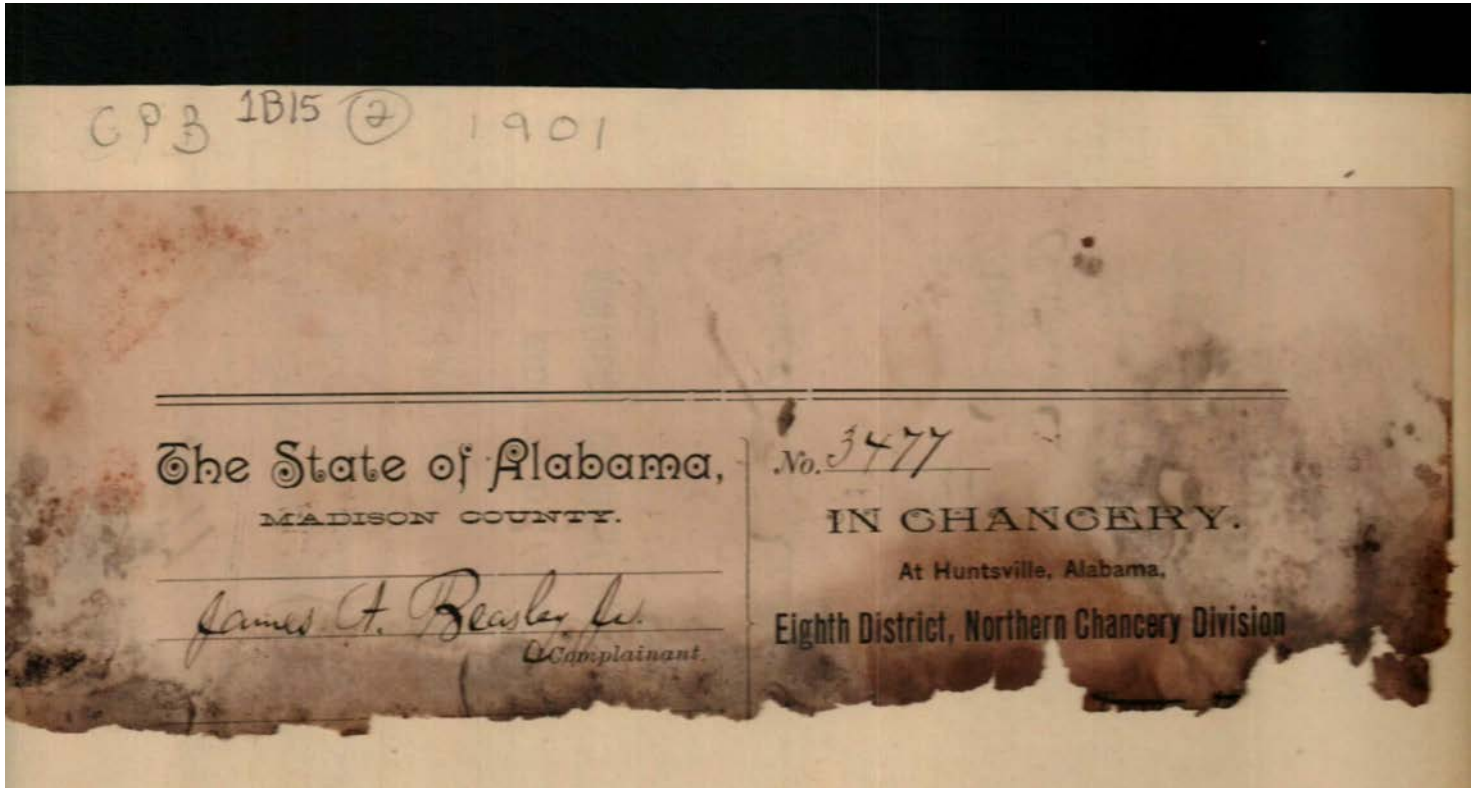 CPB 1B15 2 1901
The State of Alabama,
MADISON COUNTY.
James A. Beasley Jr.
Complainant.
No. 3477
IN CHANCERY.
At Huntsville, Alabama,
Eighth District, Northern Chancery Division